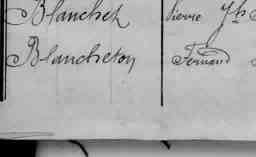 Blanchet Pierre Jh
Blancheton Fernand